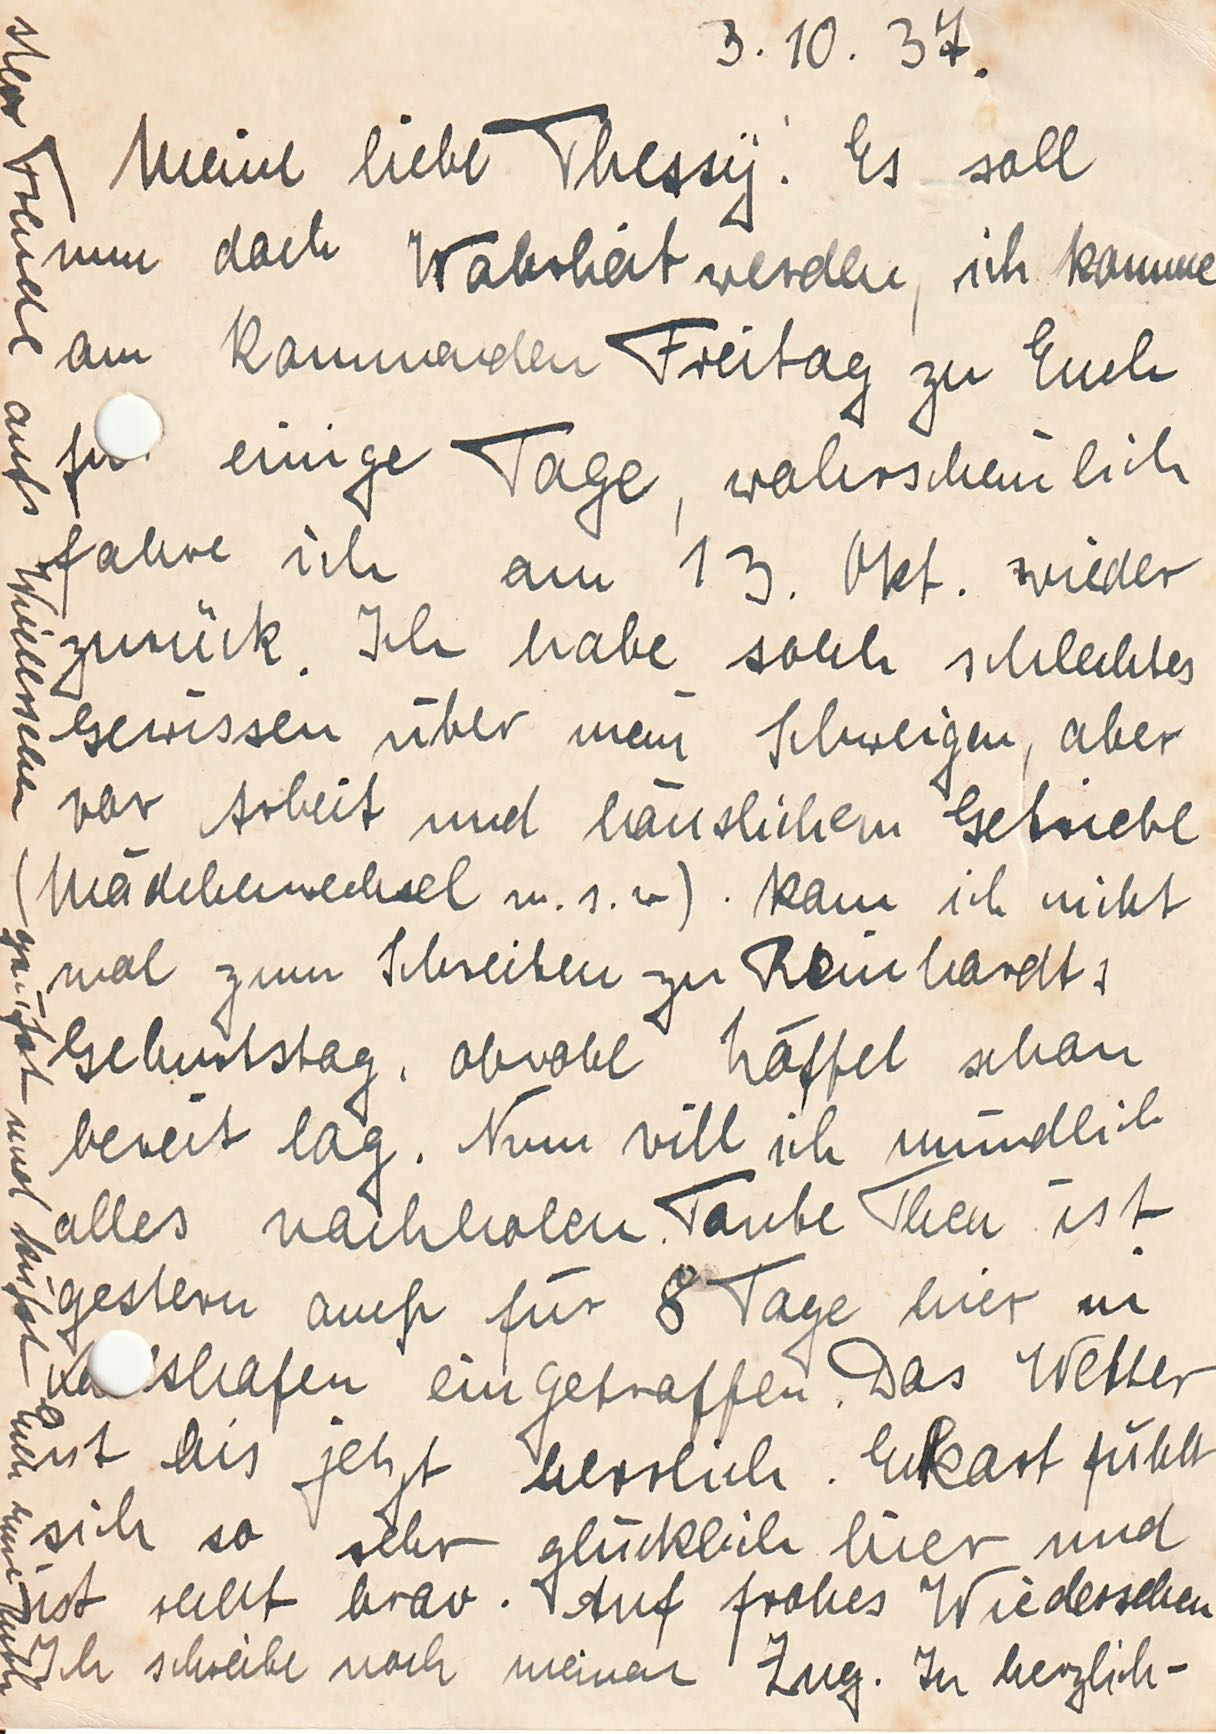 3. 10. 37.
Meine liebe Thessy! Es soll
nun doch Wahrheit werden, ich komme
am kommenden Freitag zu Euch
für einige Tage, wahrscheinlich
fahre ich am 13. Okt. wieder
zurück. Ich habe solch schlechtes
Gewissen über mein Schweigen, aber
vor Arbeit und häuslichem Getriebe
(Mädchenwechsel u. s. w). kam ich nicht
mal zum Schreiben zu Reinhardts
Geburtstag, obwohl Löffel schon
bereit lag. Nun will ich mündlich
alles nachholen. Tante Then ist
gestern auch für 8 Tage hier in
eingetroffen. Das Wetter
ist bis jetzt herrlich. Eckart fühlt
sich so sehr glücklich hier und
ist recht brav. Auf frohes Wiedersehen
Ich schreibe noch meinen Zug. In herzlich-
ster Freude aufs Wiedersehen grüßt und küßt Euch Eure